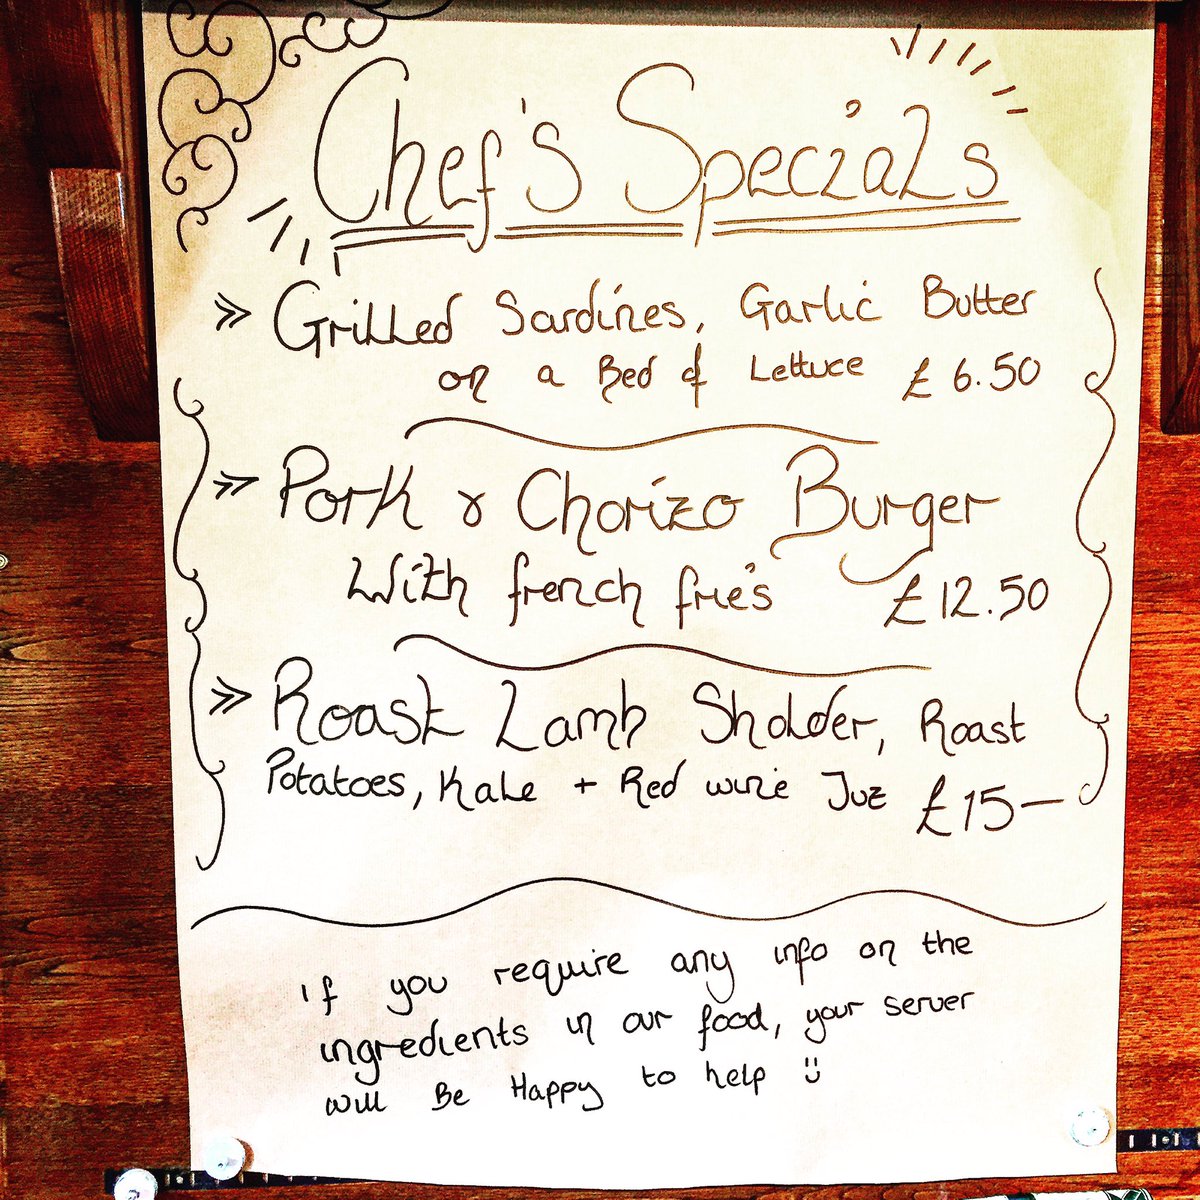 Chef's Specials
» Grilled Sardines, Garlic Butter
on a Bed of Lettuce £6.50
» Pork & Chorizo Burger
With french frie's £12.50
» Roast Lamb Sholder, Roast
Potatoes, Kale + Red wine Juz £15—
If you require any info on the
ingredients in our food, your server
will Be Happy to help